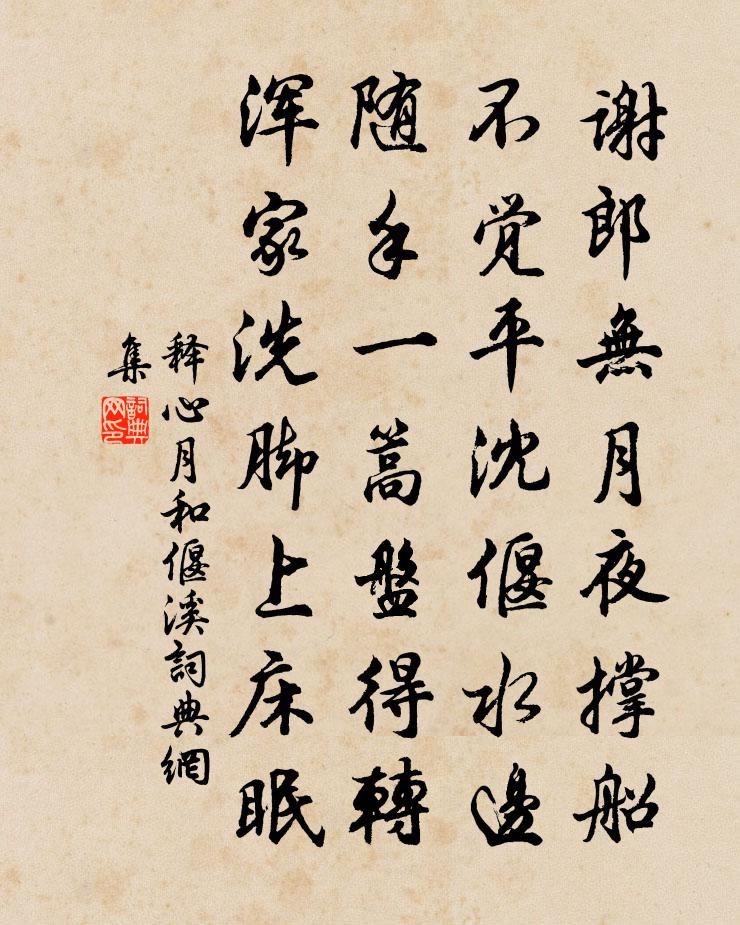 谢郎無月夜撑船
不觉平沈偃水邊
随手一篙盤得轉
浑家洗脚上床眠
释心月和偃溪詞典網
集
詞典網印